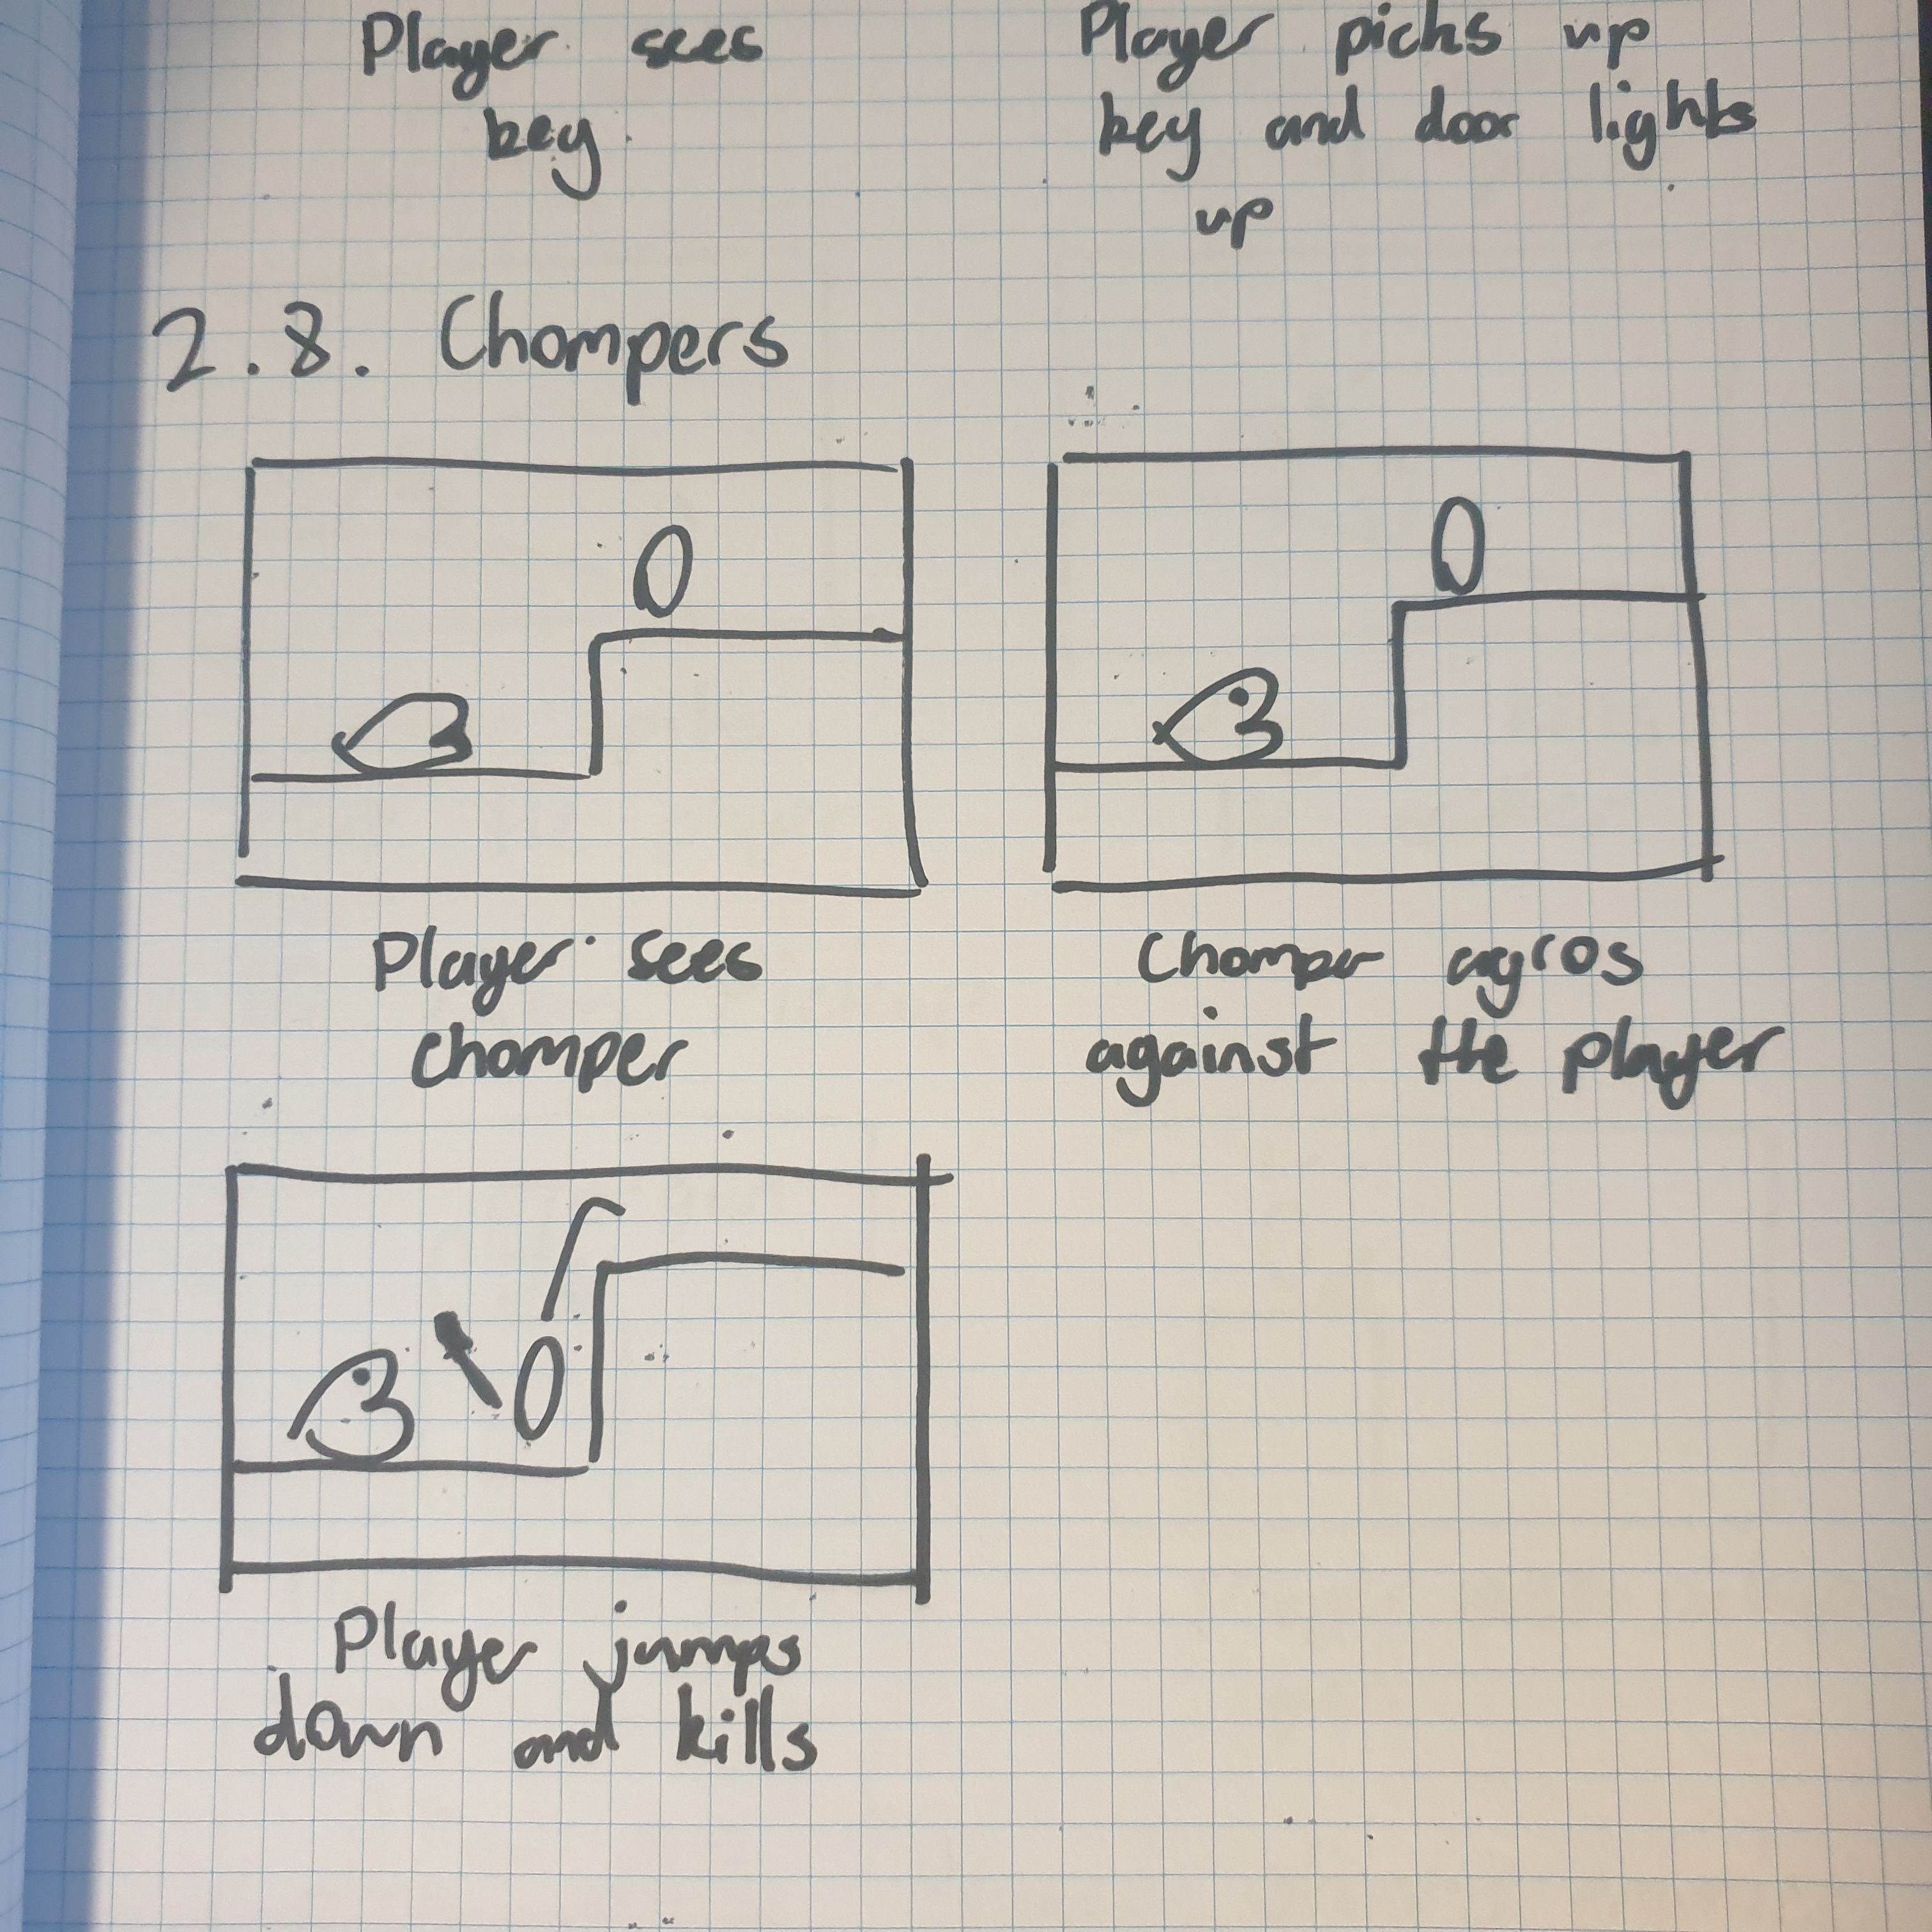 Player sees
key
Player picks up
key and door lights
up
2.8. Chompers
Player sees
chomper
Chomper agros
against the player
Player jumps
down and kills